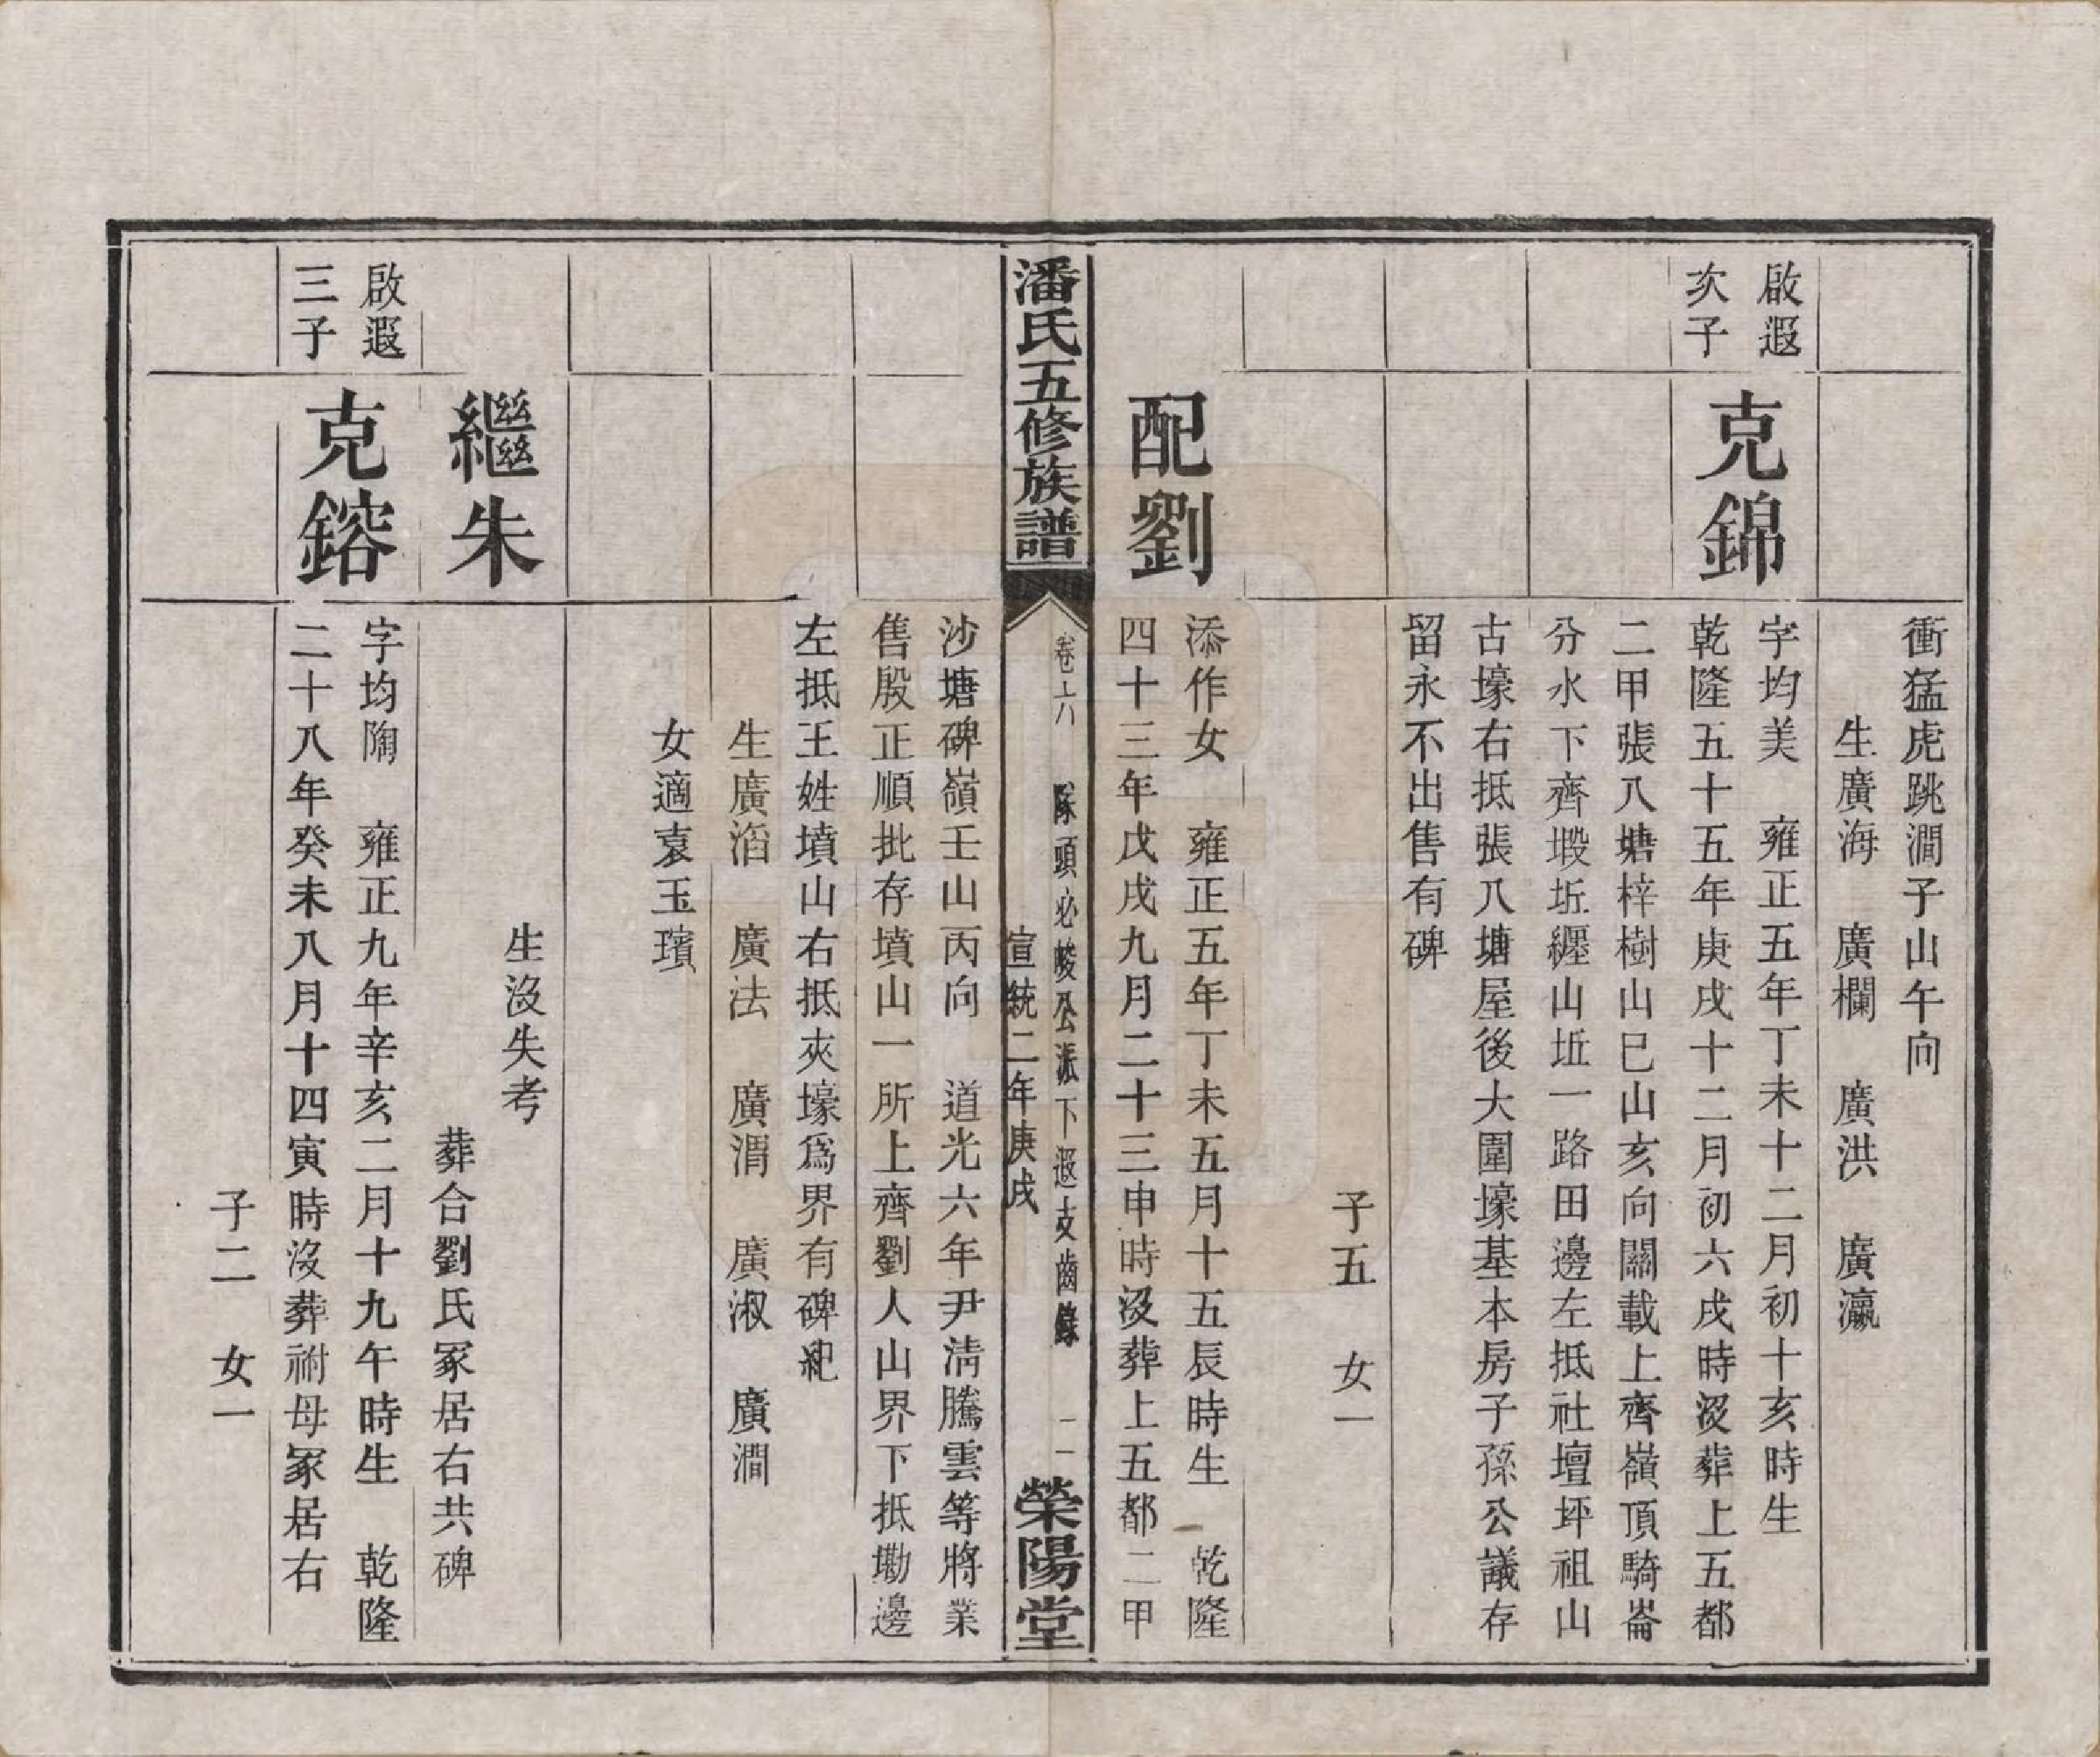 衝猛虎跳澗子山午向
生廣海　廣欄　廣洪　廣瀛
啟遐
次子
克錦
字均美　雍正五年丁未十二月初十亥時生
乾隆五十五年庚戌十二月初六戌時沒葬上五都
二甲張八塘梓樹山巳山亥向關載上齊嶺頂騎崙
分水下齊塅坵纒山坵一路田邊左抵社壇坪祖山
古壕右抵張八塘屋後大圍壕基本房子孫公議存
留永不出售有碑
子五　女一
配劉
添作女　雍正五年丁未五月十五辰時生　乾隆
四十三年戊戌九月二十三申時沒葬上五都二甲
潘氏五修族譜
卷十六　隊頭必畯公派下遐支齒錄　二一
宣統二年庚戌
榮陽堂
沙塘碑嶺壬山丙向　道光六年尹清騰雲等將業
售殷正順批存墳山一所上齊劉人山界下抵墈邊
左抵王姓墳山右抵夾壕爲界有碑紀
生廣滔　廣法　廣渭　廣淑　廣澗
女適袁玉璸
繼朱
生沒失考
葬合劉氏冢居右共碑
啟遐
三子
克鎔
字均陶　雍正九年辛亥二月十九午時生　乾隆
二十八年癸未八月十四寅時沒葬祔母冢居右
子二　女一